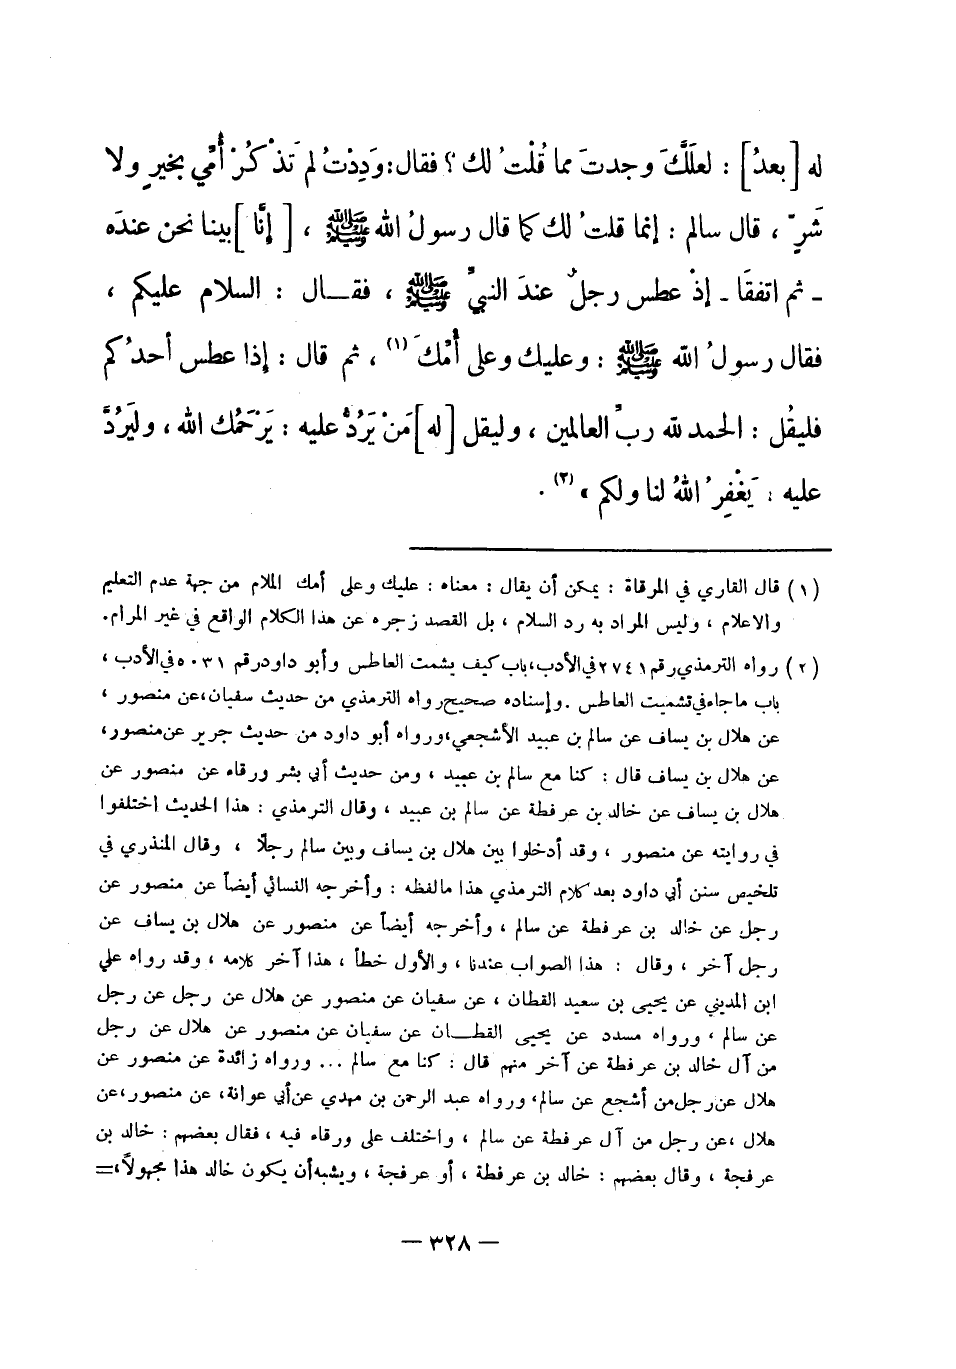 له [بعدُ] : لعلَّكَ وجدتَ مما قُلْتُ لك ؟ فقال : وَدِدْتُ لم تَذْكُرْ أُمِّي بخيرٍ ولا
شَرٍّ ، قال سالم : إنما قلتُ لك كما قال رسولُ الله ﷺ ، [ إنَّا ] بينا نحن عندَه
ـ ثم اتفقَا ـ إذْ عطس رجلٌ عندَ النبيِّ ﷺ ، فقـال : السلام عليكم ،
فقال رسولُ الله ﷺ : وعليك وعلى أُمِّكَ (١) ، ثم قال : إذا عطس أحدُكم
فليقُل : الحمد لله ربِّ العالمين ، وليقل [له] مَنْ يَرُدُّ عليه : يَرْحَمُك الله ، وليَرُدَّ
عليه : يَغْفِرُ اللهُ لنا ولكم » (٢) .
(١) قال القاري في المرقاة : يمكن أن يقال : معناه : عليك وعلى أمك الملام من جهة عدم التعليم
والاعلام ، وليس المراد به رد السلام ، بل القصد زجره عن هذا الكلام الواقع في غير المرام.
(٢) رواه الترمذي رقم ٢٧٤١ في الأدب، باب كيف يشمت العاطس وأبو داود رقم ٥٠٣١ في الأدب ،
باب ما جاء في تشميت العاطس . وإسناده صحيح رواه الترمذي من حديث سفيان، عن منصور ،
عن هلال بن يساف عن سالم بن عبيد الأشجعي، ورواه أبو داود من حديث جرير عن منصور،
عن هلال بن يساف قال : كنا مع سالم بن عبيد ، ومن حديث أبي بشر ورقاء عن منصور عن
هلال بن يساف عن خالد بن عرفطة عن سالم بن عبيد ، وقال الترمذي : هذا الحديث اختلفوا
في روايته عن منصور ، وقد أدخلوا بين هلال بن يساف وبين سالم رجلاً ، وقال المنذري في
تلخيص سنن أبي داود بعد كلام الترمذي هذا ما لفظه : وأخرجه النسائي أيضاً عن منصور عن
رجل عن خالد بن عرفطة عن سالم ، وأخرجه أيضاً عن منصور عن هلال بن يساف عن
رجل آخر ، وقال : هذا الصواب عندنا ، والأول خطأ ، هذا آخر كلامه ، وقد رواه علي
ابن المديني عن يحيى بن سعيد القطان ، عن سفيان عن منصور عن هلال عن رجل عن رجل
عن سالم ، ورواه مسدد عن يحيى القطـان عن سفيان عن منصور عن هلال عن رجل
من آل خالد بن عرفطة عن آخر منهم قال : كنا مع سالم ... ورواه زائدة عن منصور عن
هلال عن رجل من أشجع عن سالم، ورواه عبد الرحمن بن مهدي عن أبي عوانة، عن منصور، عن
هلال ، عن رجل من آل عرفطة عن سالم ، واختلف على ورقاء فيه ، فقال بعضهم : خالد بن
عرفجة ، وقال بعضهم : خالد بن عرفطة ، أو عرفجة ، ويشبه أن يكون خالد هذا مجهولاً، =
— ٣٢٨ —